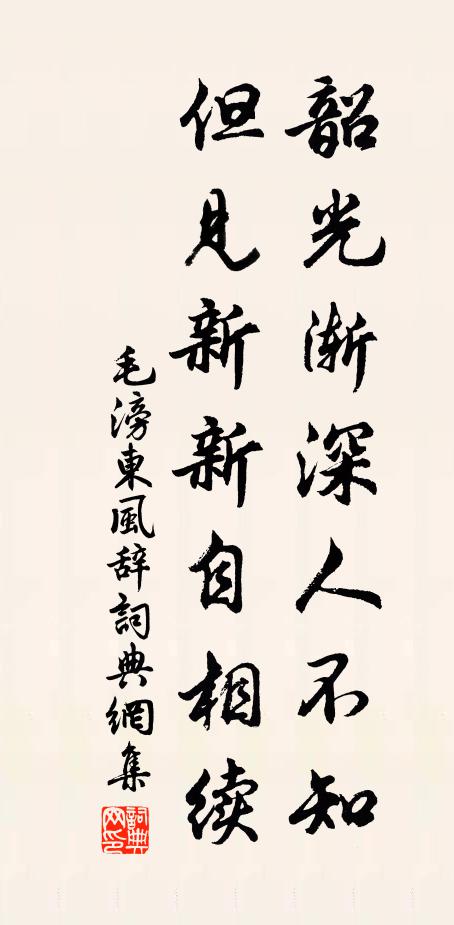 韶光渐深人不知
但见新新自相续
毛滂東風辞詞典網集
詞典网印